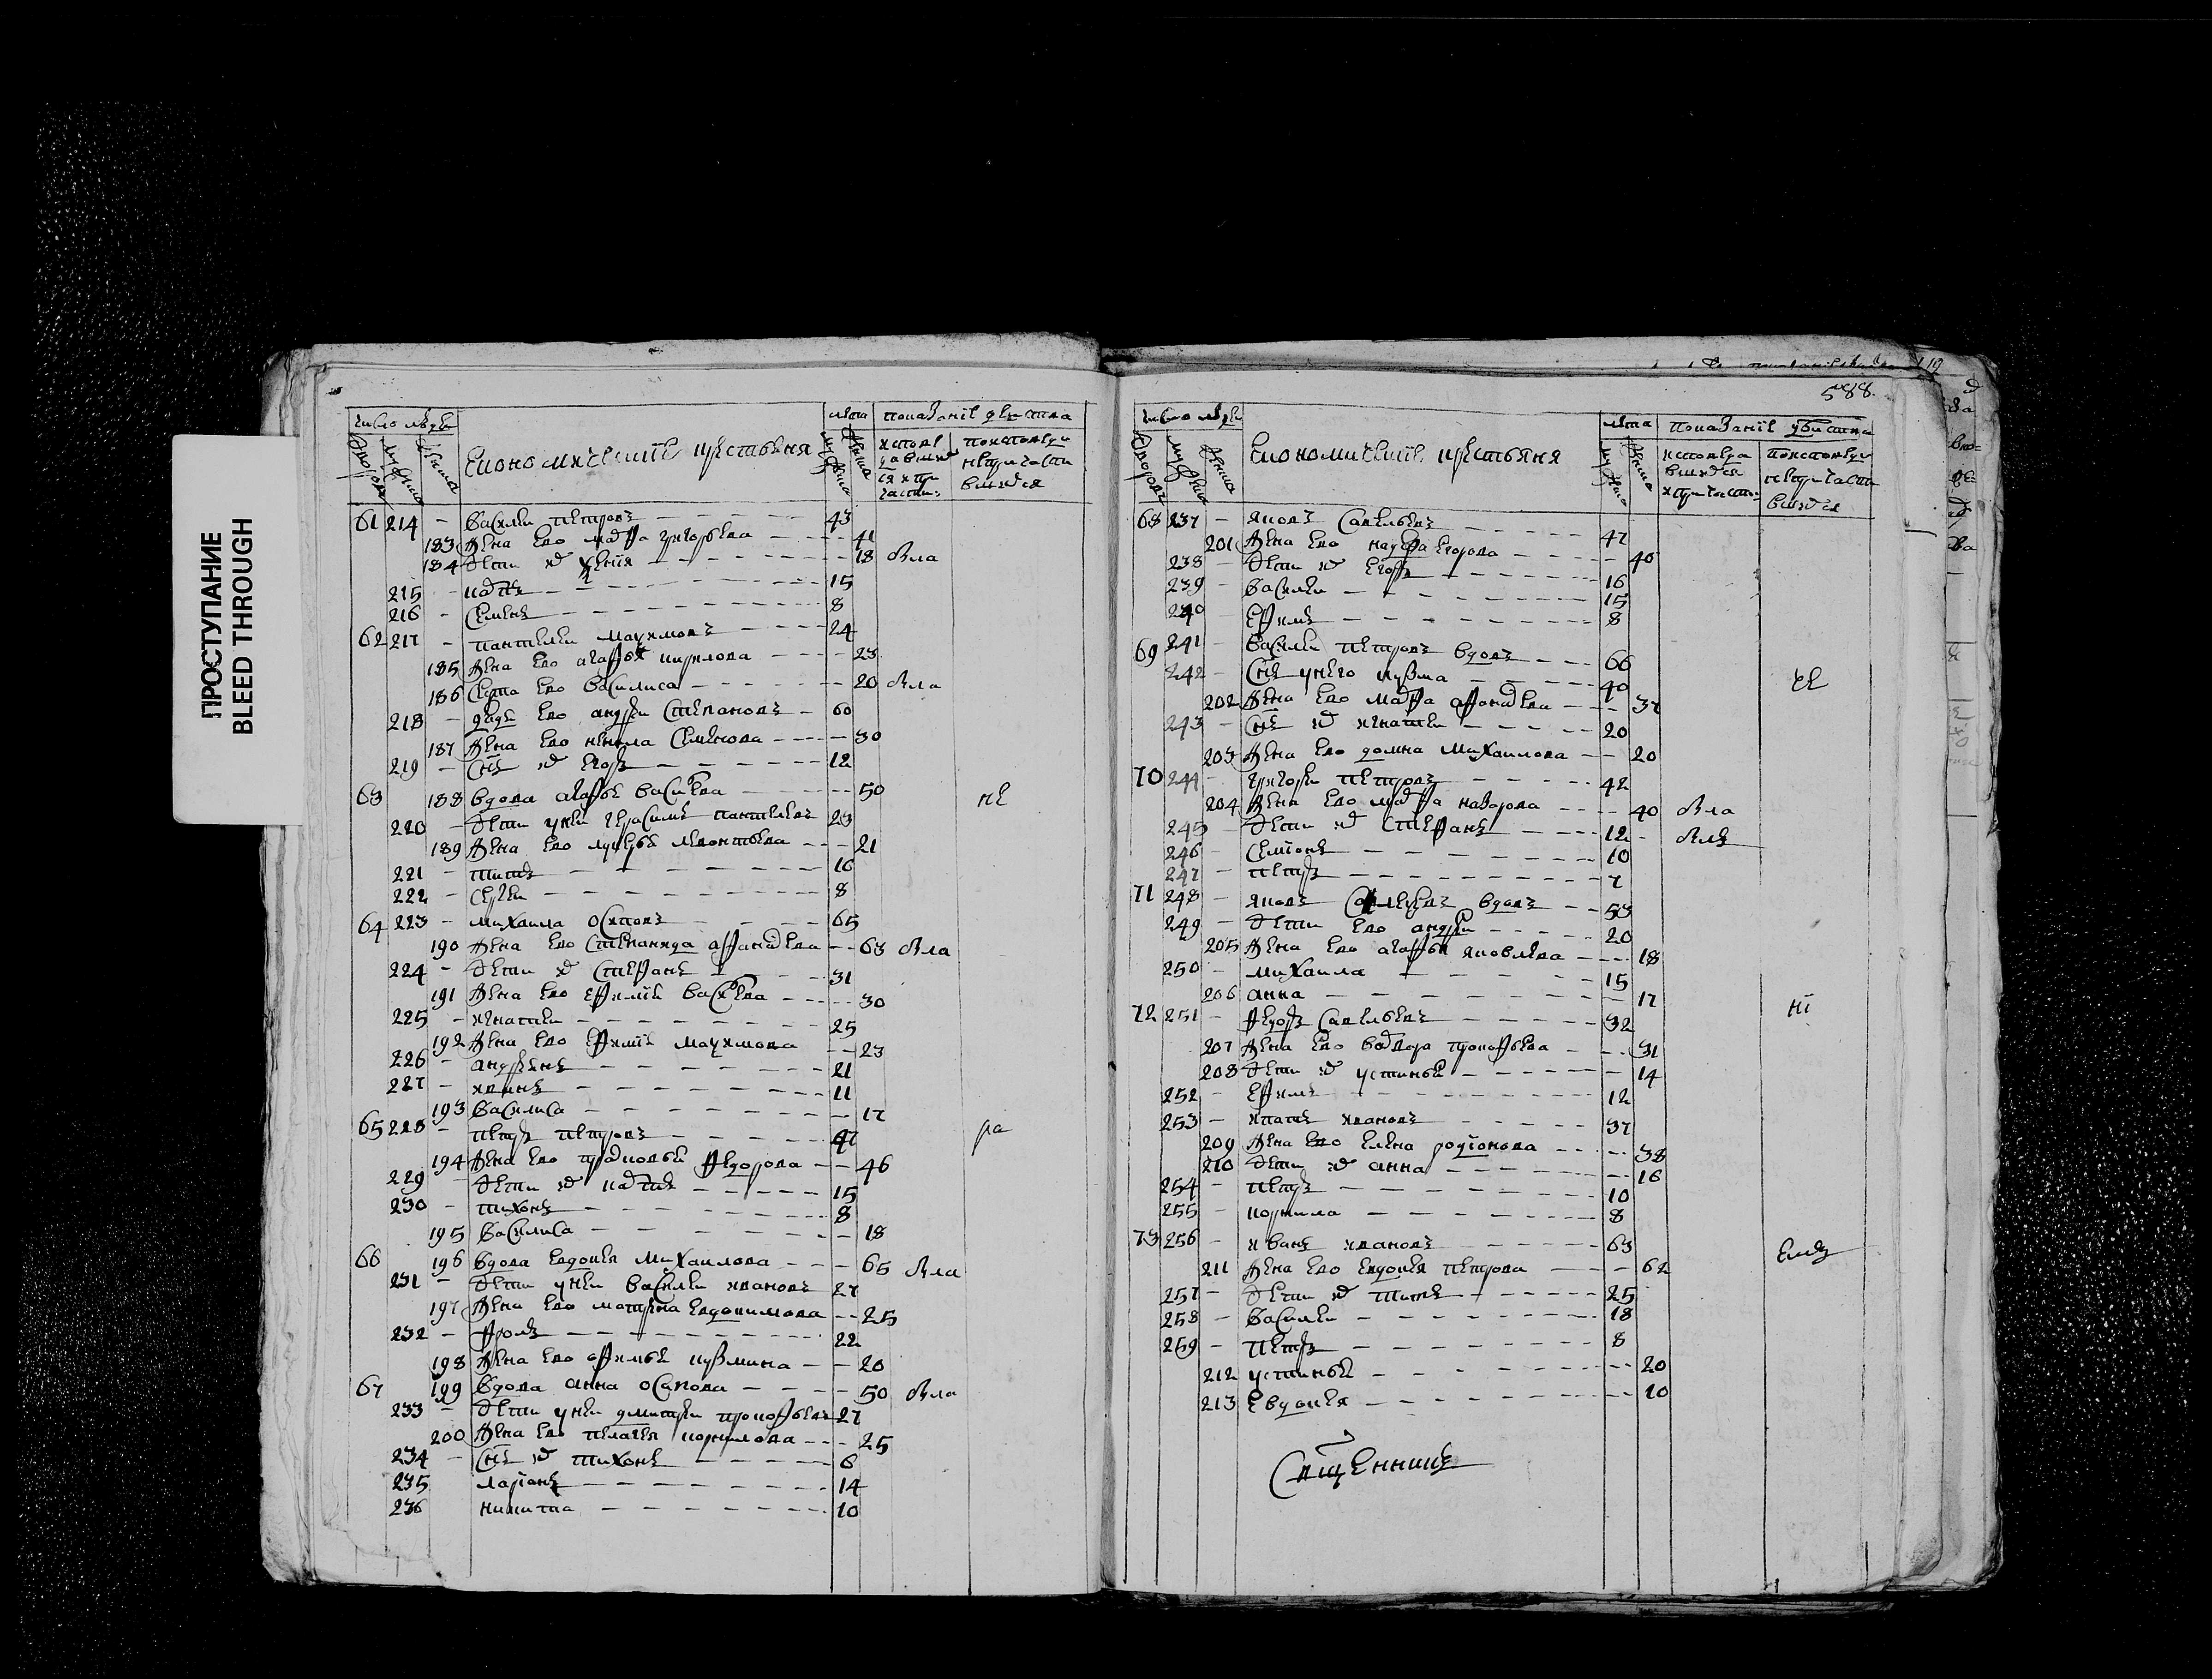 ПРОСТУПАНИЕ
BLEED THROUGH
число людей
лѣта
показанiе
Економическiе крестьяня
61 214 - Василеи Петровъ - 43
183 Жена ево Марфа Григорьева - 41
184 дети их Ксения - 18 была
215 - Карпъ - 15
216 - Семенъ - 8
62 217 - Пантелеи Максимовъ - 24
185 Жена ево Агафья Кирилова - 23
186 Сестра ево Василиса - 20 была
218 - дядя ево Андреи Степановъ - 60
187 Жена ево Ненила Семенова - 30
219 - Снъ их Егоръ - 12
63 188 вдова Агафья Васильева - 50 не
220 - дети у неи Герасимъ Пантелеевъ 23
189 Жена ево Лукерья Леонтьева - 21
221 - Титъ - 16
222 - Сергеи - 8
64 223 - Михаила Осиповъ - 65
190 Жена ево Степанида Афанасьева - 63 была
224 - дети их Стефанъ - 31
191 Жена ево Ефимия Васильева - 30
225 - Игнатеи - 25
192 Жена ево Ефимия Максимова - 23
226 - Андреянъ - 21
227 - Иванъ - 11
193 Василиса - 17
65 228 - Петръ Петровъ - 47 ра
194 Жена ево Прасковья Федорова - 46
229 - дети их Карпъ - 15
230 - Тихонъ - 8
195 Василиса - 18
66 196 вдова Евдокея Михаилова - 65 была
231 - дети у неи Василеи Ивановъ 27
197 Жена ево Матрена Евдокимова - 25
232 - Фролъ - 22
198 Жена ево Афимья Кузмина - 20
67 199 вдова Анна Осипова - 50 была
233 - дети у неи Дмитреи Прокофьевъ 27
200 Жена ево Пелагея Корнилова - 25
234 - Снъ их Тихонъ - 6
235 Ларионъ - 14
236 Никита - 10
588.
число людей
лѣта
показанiе
Економическiе крестьяня
68 237 - Яковъ Савельевъ - 47
201 Жена ево Егорова - 40
238 - дети их Егоръ - 16
239 - Василеи - 15
240 - Ефимъ - 8
69 241 - Василеи Петровъ вдовъ - 66
242 - Снъ у него Кузма - 40 че
202 Жена ево Марфа Афонасьева - 37
243 - Снъ их Игнатеи - 20
203 Жена ево Домна Михаилова - 20
70 244 - Григореи Петровъ - 42
204 Жена ево Марфа Назарова - 40 была
245 - дети их Стефанъ - 12 - былъ
246 - Семионъ - 10
247 - Петръ - 7
71 248 - Яковъ вдовъ - 53
249 - дети ево Андреи - 20
205 Жена ево Агафья Яковлева - 18
250 - Михаила - 15
206 Анна - 17
72 251 - Федоръ Савельевъ - 32 нi
207 Жена ево Варвара Прокофьева - 31
208 дети их Устинья - 14
252 - Ефимъ - 12
253 - Ипатъ Ивановъ - 37
209 Жена ево Елена Родiонова - 38
210 дети их Анна - 16
254 - Петръ - 10
255 - Корнила - 8
73 256 - Иванъ Ивановъ - 63
211 Жена ево Евдокея Петрова - 62
257 - дети их Титъ - 25
258 - Василеи - 18
259 - Петръ - 8
212 Устинья - 20
213 Евдокея - 10
Сващенникъ